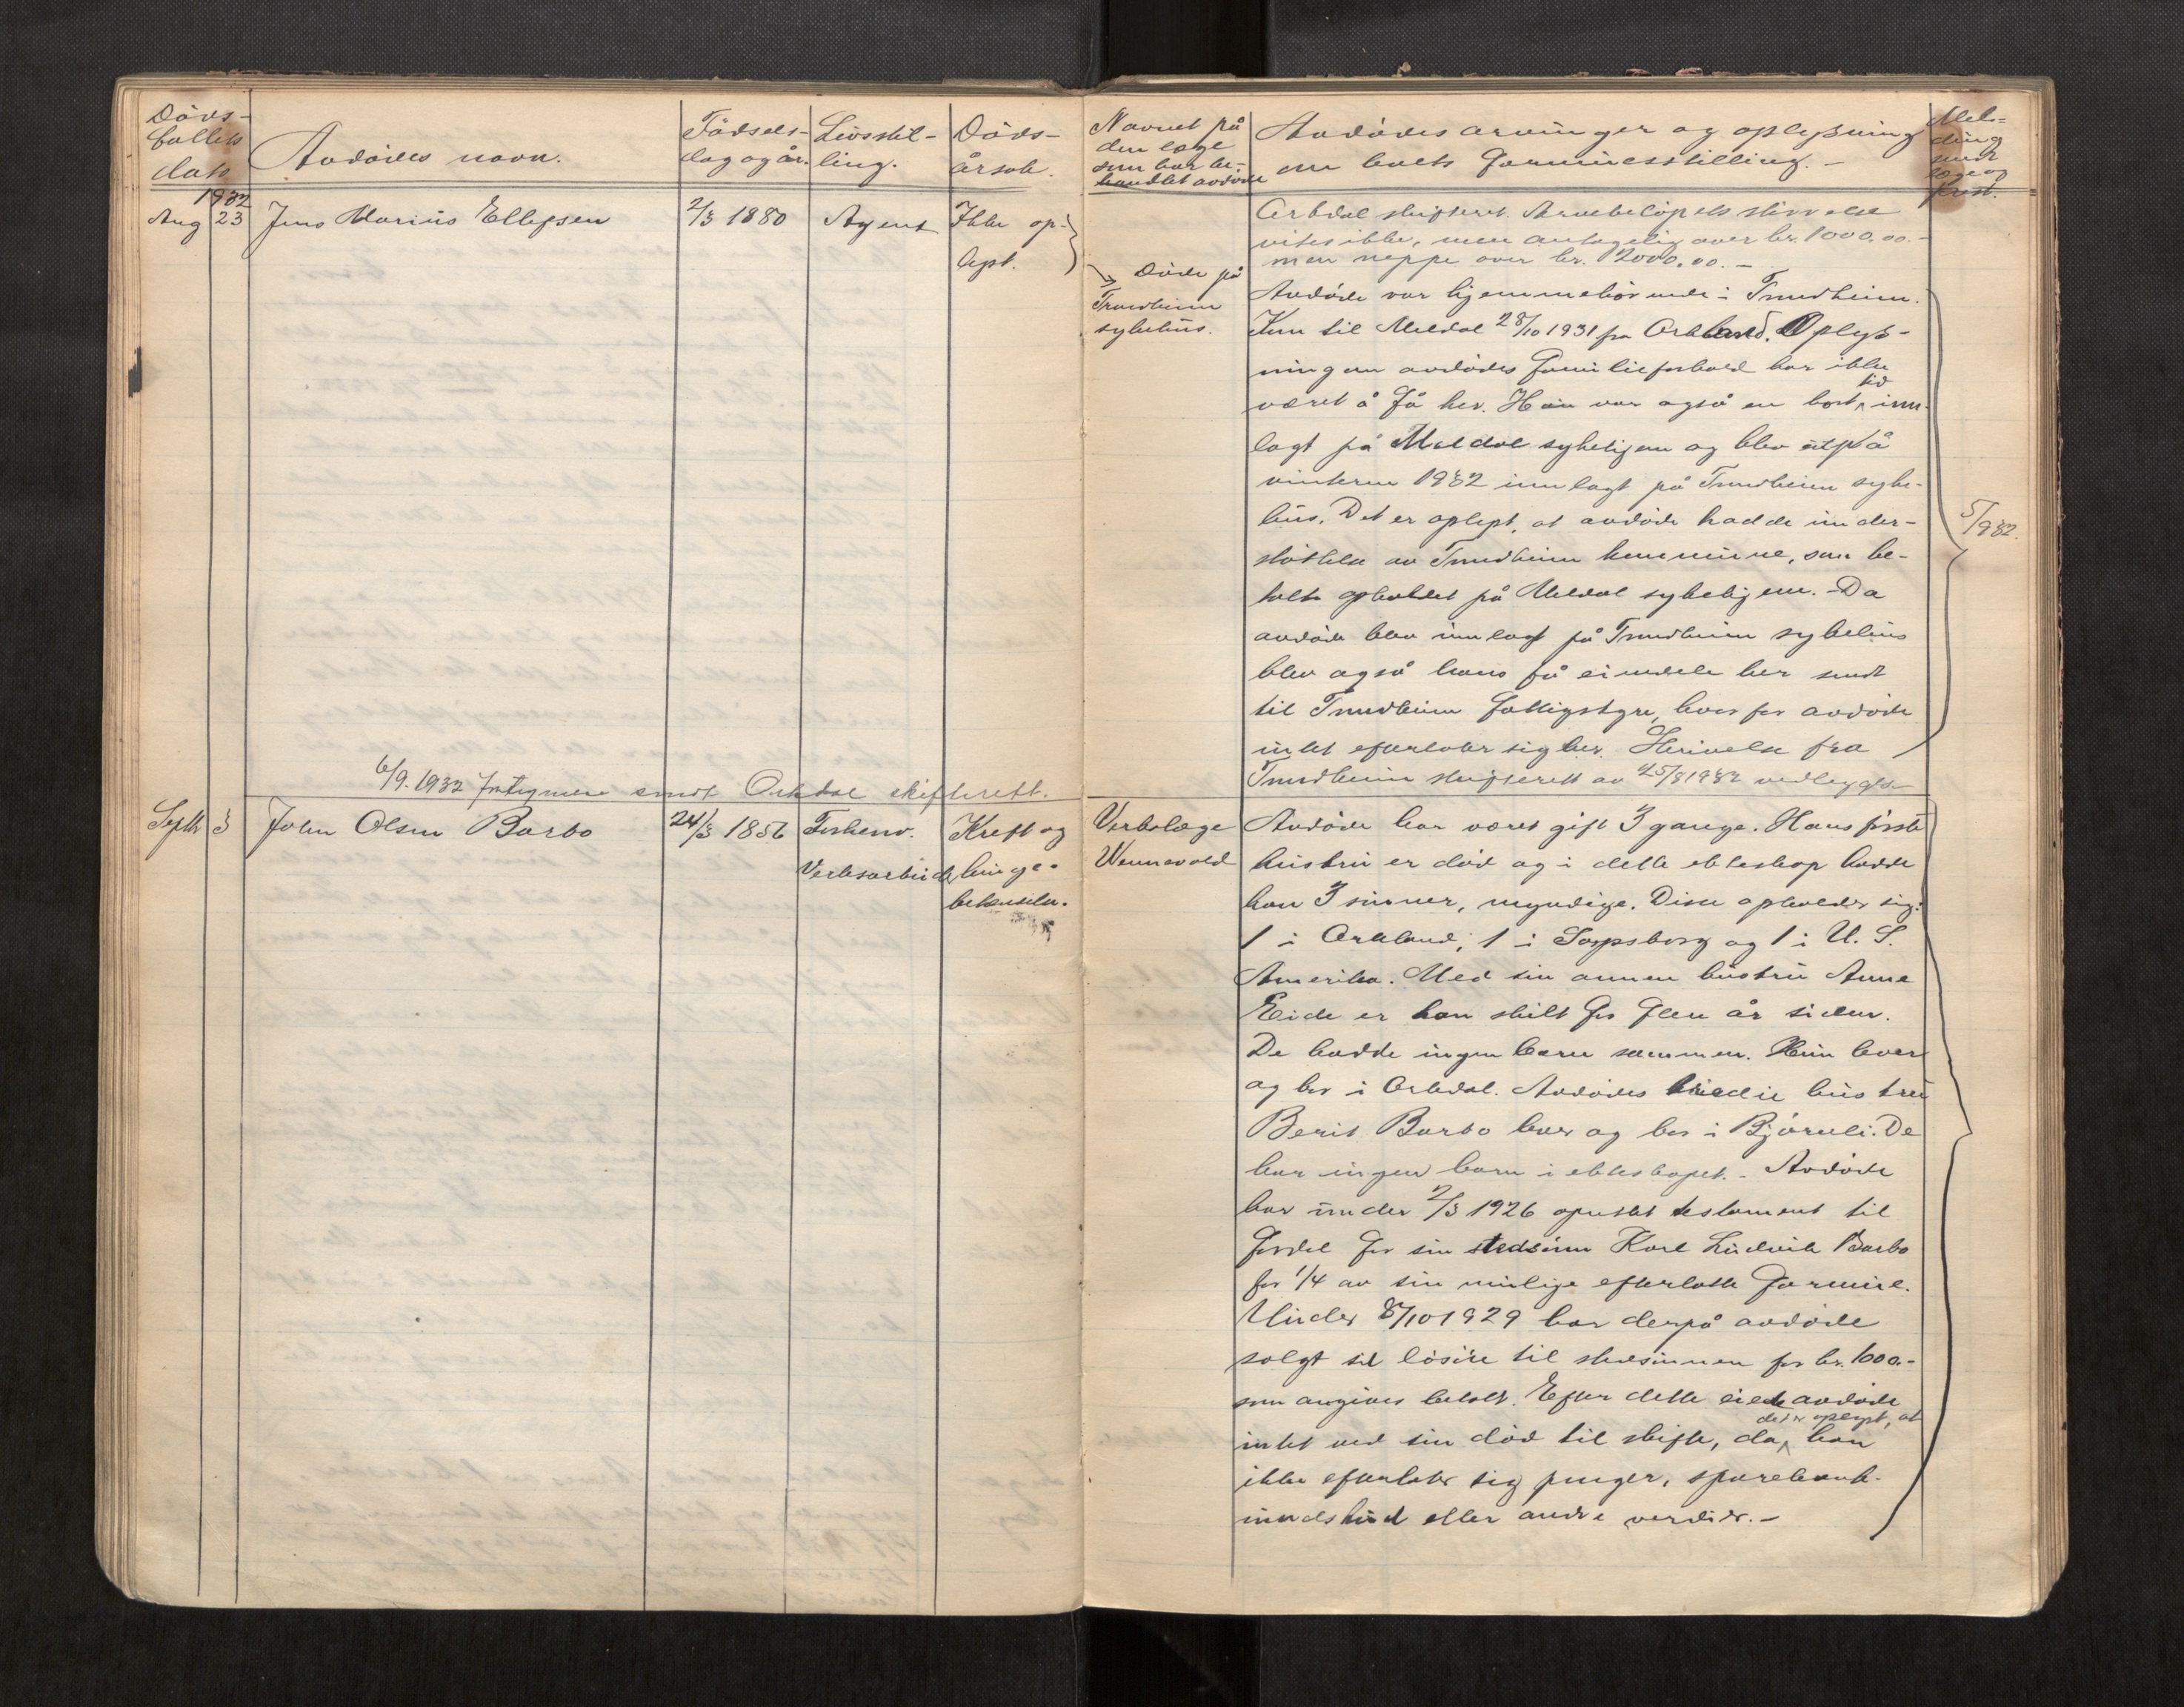 Døds-
fallets
dato
Avdødes navn.
Fødsels-
dag og år.
Livsstil-
ling.
Døds-
årsak.
1932
Aug 23 Jens Marius Ellefsen 2/3 1880 Agent Ikke op-
lyst.
6/9. 1932 sendt Orkdal skifterett.
Septbr 3 John Olsen Barbo 24/3 1856 Forhenv. Kreft og
Verksarbeider lunge-
betennelse.
Navnet på
den læge
som har be-
handlet avdøde
Avdødes arvinger og oplysning
om boets formuesstilling. -
Mel-
ding
sendt
læge og
prest.
Orkdal skifterett. Arvebeløpets størrelse
vites ikke, men antagelig over kr. 1000.00.-
men neppe over kr. 12000.00. -
Døde på
Trondheim
sykehus.
Avdøde var hjemmehørende i Trondheim.
Kom til Meldal 28/10 1931 fra Orkland. Oplys-
ning om avdødes familieforhold har ikke
været å få her. Han var også en kort tid inn-
lagt på Meldal sykehjem og blev utpå
vinteren 1932 innlagt på Trondheim syke-
hus. Det er oplyst, at avdøde hadde under-
støttelse av Trondheim kommune, som be-
talte opholdet på Meldal sykehjem. - Da
avdøde blev innlagt på Trondheim sykehus
blev også hans få eiendele her sendt
til Trondheim fattigstyre, hvorfor avdøde
intet efterlater sig her. Skrivelse fra
Trondheim skifterett av 25/8 1932 vedlegges. -
5/9 32.
Verkslæge
Wennevold
Avdøde har været gift 3 gange. Hans første
hustru er død og i dette ekteskap hadde
han 3 sønner, myndige. Disse opholder sig:
1 i Orkland, 1 i Sarpsborg og 1 i U. S.
Amerika. Med sin annen hustru Anne
Eide er han skilt for flere år siden.
De hadde ingen barn sammen. Hun lever
og bor i Orkdal. Avdødes tredie hustru
Berit Barbo lever og bor i Bjørnli. De
har ingen barn i ekteskapet. - Avdøde
har under 2/3 1926 oprettet testament til
fordel for sin stedsønn Karl Ludvik Barbo
for 1/4 av sin mulige efterlatte formue.
Under 8/10 1929 har derpå avdøde
solgt sit løsøre til stedsønnen for kr. 1000.-
som angives betalt. Efter dette eiede avdøde
intet ved sin død til skifte, da det er oplyst, at han
ikke efterlater sig penger, sparebank-
innskud eller andre verdier. -